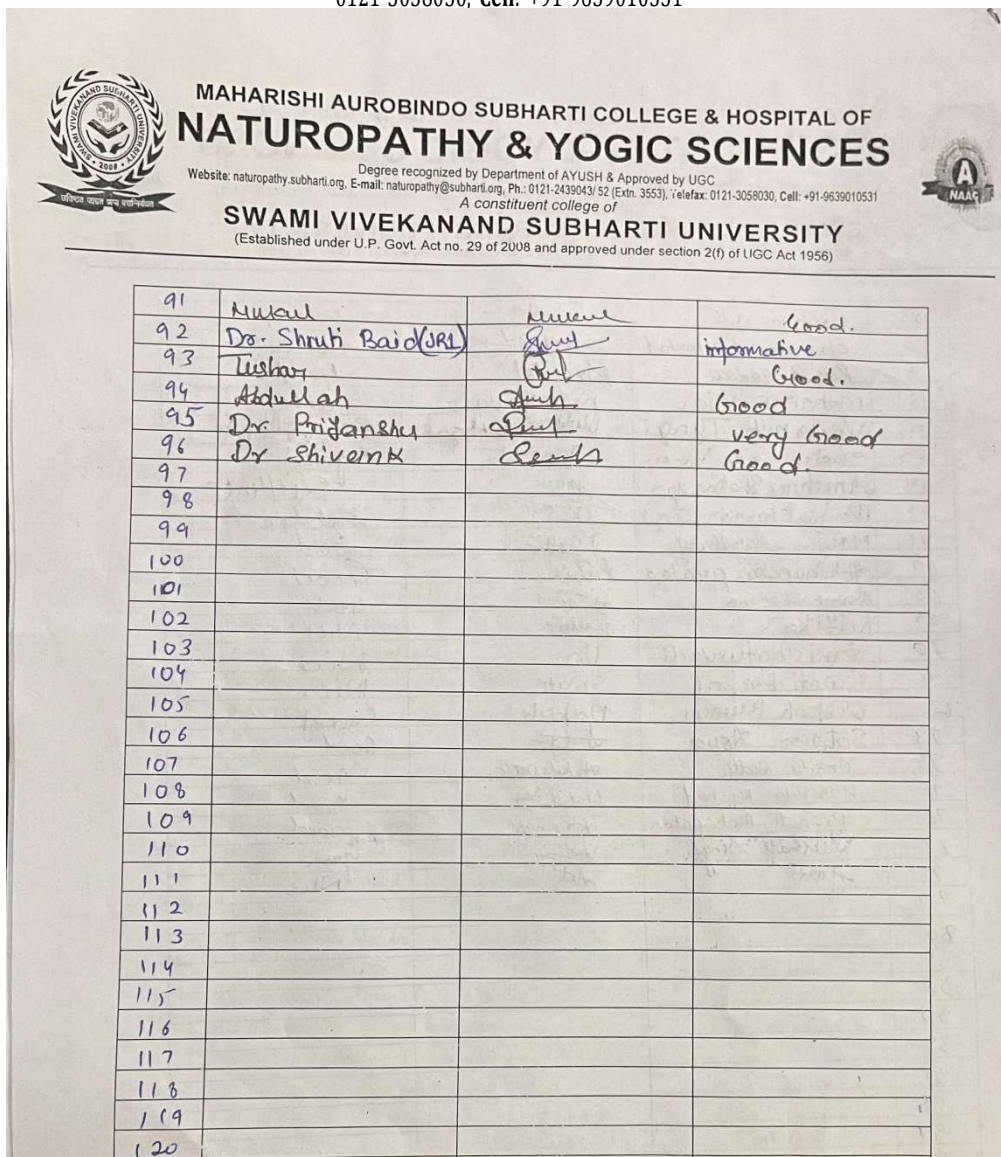 0121-3058030, Cell: +91-9639010531
MAHARISHI AUROBINDO SUBHARTI COLLEGE & HOSPITAL OF
NATUROPATHY & YOGIC SCIENCES
Degree recognized by Department of AYUSH & Approved by UGC
Website: naturopathy.subharti.org, E-mail: naturopathy@subharti.org, Ph.: 0121-2439043/ 52 (Extn. 3553), Telefax: 0121-3058030, Cell: +91-9639010531
A constituent college of
SWAMI VIVEKANAND SUBHARTI UNIVERSITY
(Established under U.P. Govt. Act no. 29 of 2008 and approved under section 2(f) of UGC Act 1956)
SWAMI VIVEKANAND SUBHARTI UNIVERSITY
2008
A
NAAC
91 Mukul Mukul Good.
92 Dr. Shruti Baid(JR1) informative
93 Tushar Good.
94 Abdullah Good
95 Dr. Priyanshu very Good
96 Dr Shivank Good.
97
98
99
100
101
102
103
104
105
106
107
108
109
110
111
112
113
114
115
116
117
118
119
120